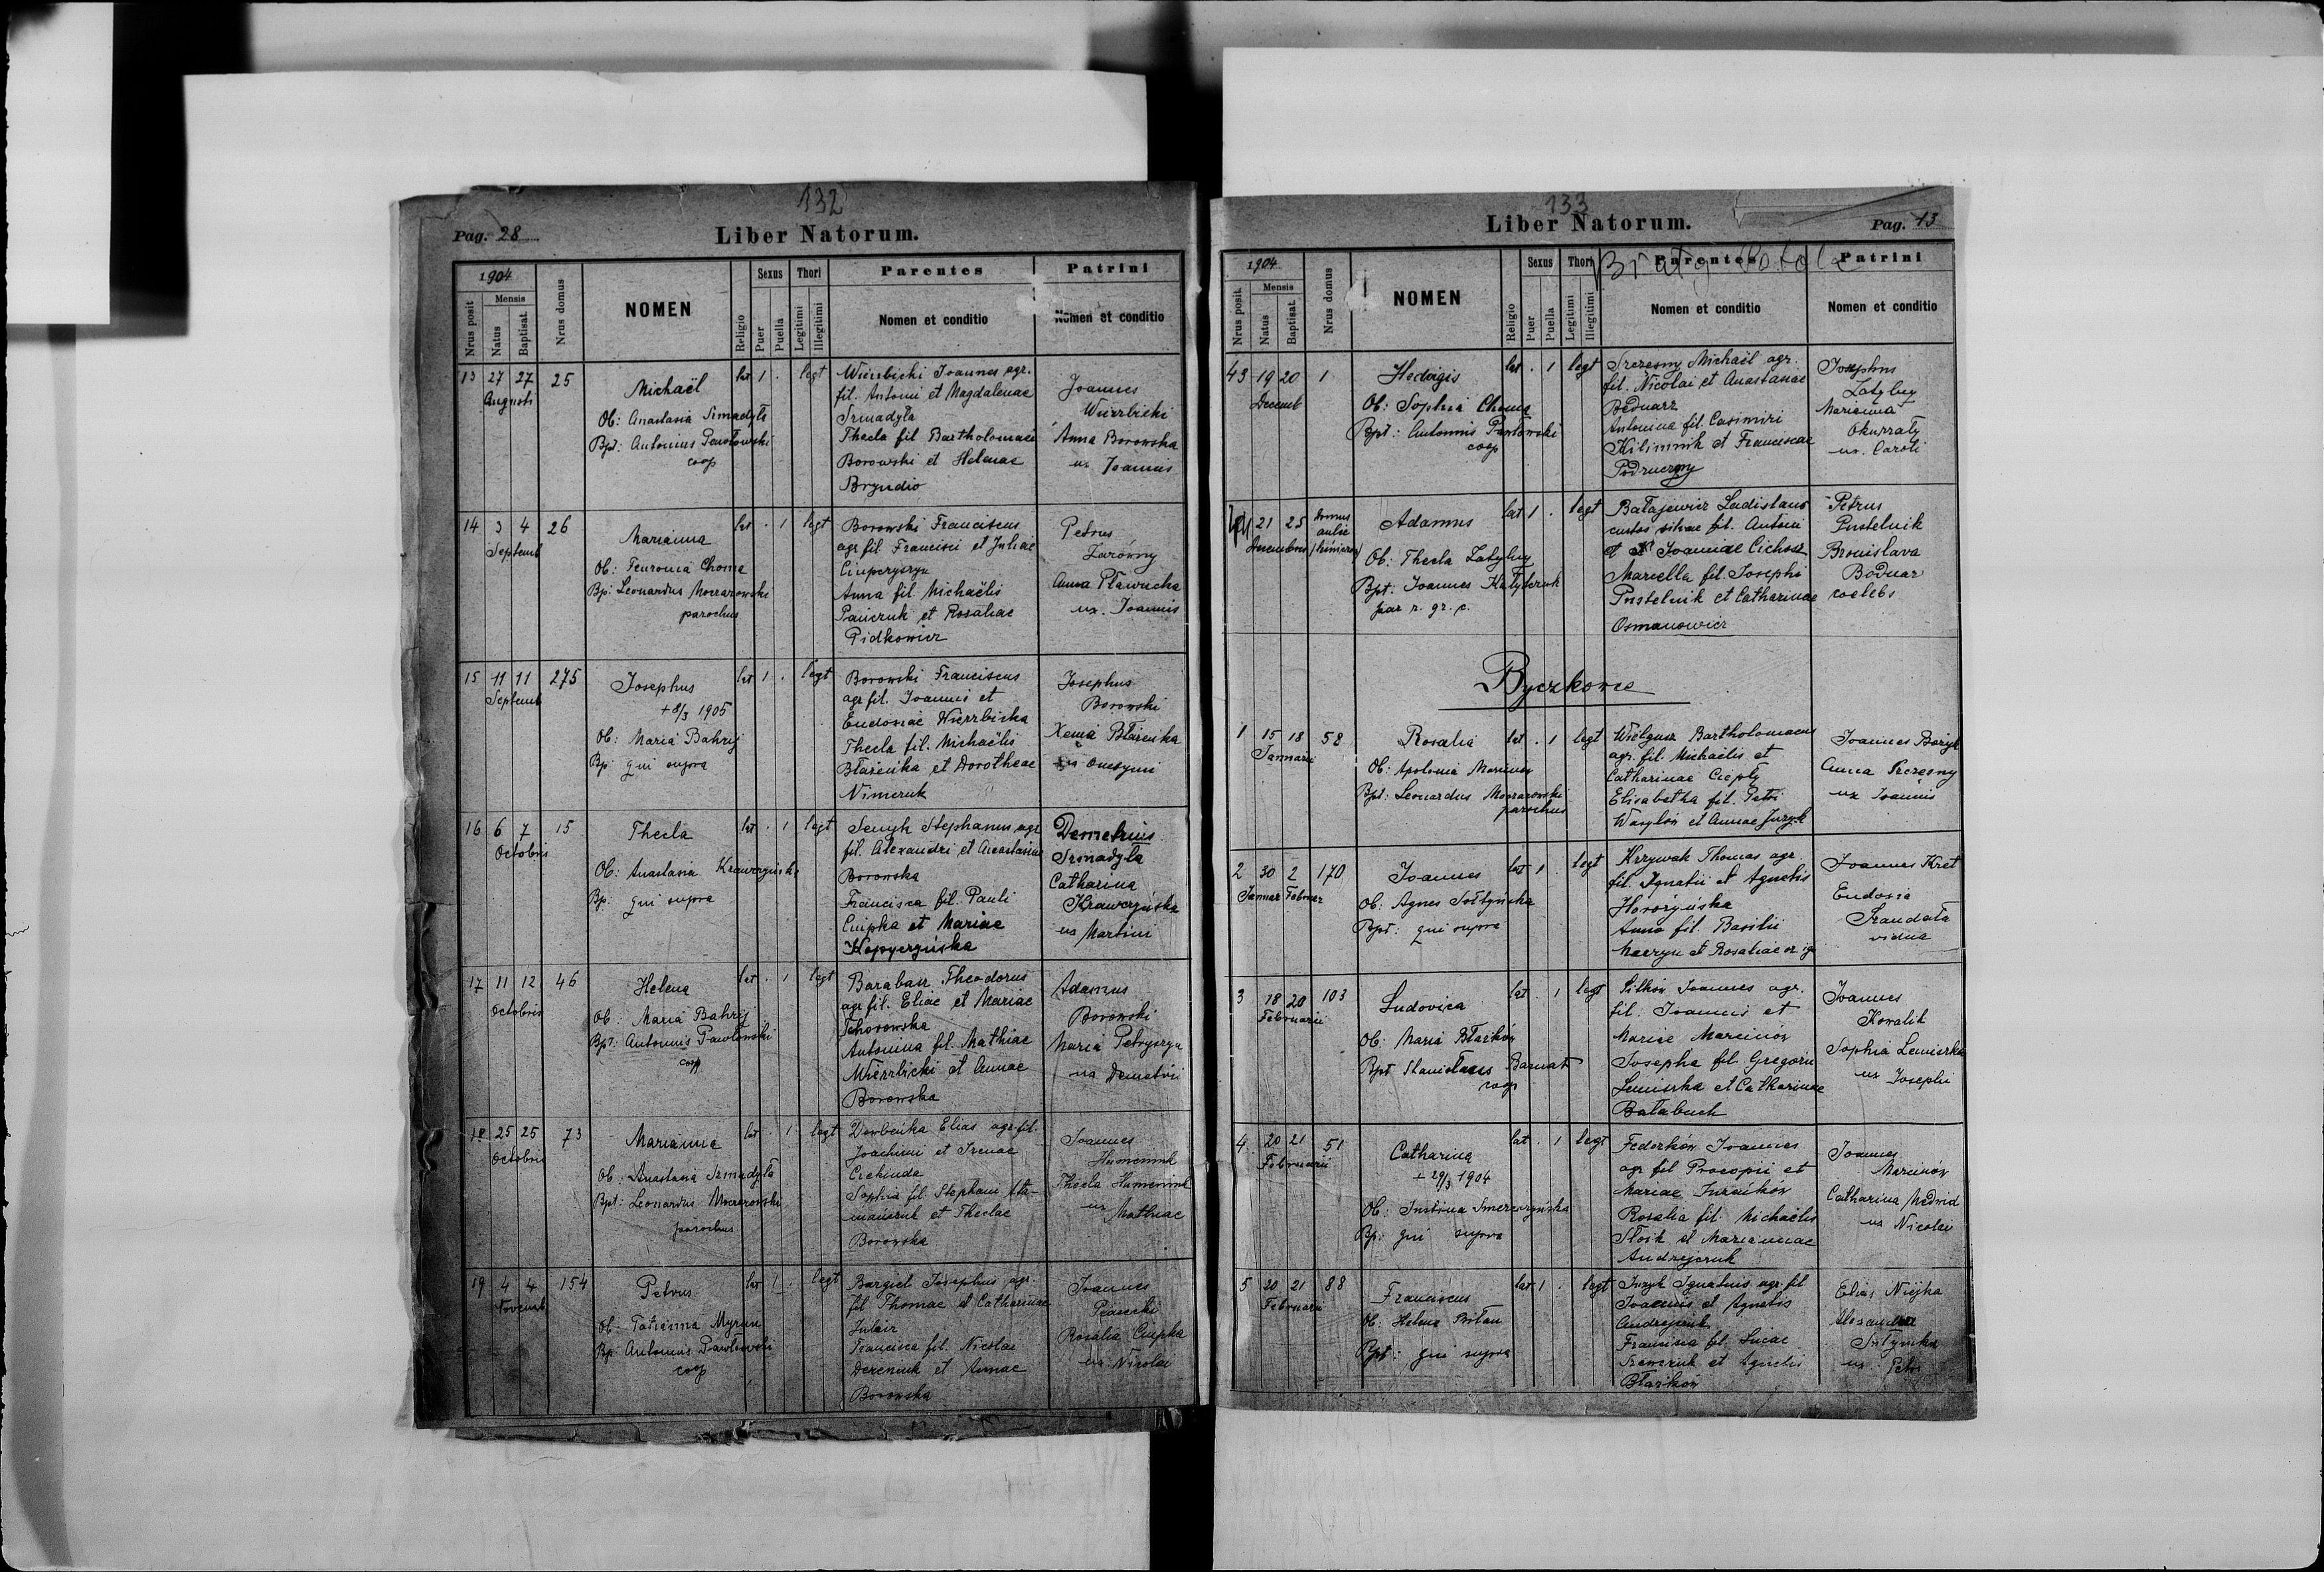 132
Pag. 28
Liber Natorum.
1904
Nrus posit
Mensis
Natus
Baptisat.
Nrus domus
NOMEN
Religio
Sexus
Puer
Puella
Thori
Legitimi
Illegitimi
Parentes
Nomen et conditio
Patrini
Nomen et conditio
13 27 27 25
Augusti
Michaël
Ob: Anastasia Srmadyła
Bpt: Antonius Pawłowski
coop
lat 1 . legt
Wierzbicki Joannes agr.
fil. Antonii et Magdalenae
Srmadyła
Thecla fil Bartholomaei
Borowski et Helenae
Bryndio
Joannes
Wierzbicki
Anna Borowska
ux Joannis
14 3 4 26
Septemb
Marianna
Ob: Fenronia Choma
Bp: Leonardus Moczarowski
parochus
lat . 1 legt
Borowski Franciscus
agr fil Francisci et Juliae
Ciuperyszyn
Anna fil. Michaëlis
Panczuk et Rosaliae
Pidkowicz
Petrus
Zarówny
Anna Pławucka
ux. Joannis
15 11 11 275
Septemb
Josephus
+ 8/3 1905
Ob: Maria Bahrij
Bp: qui supra
lat 1 . legt
Borowski Franciscus
agr fil. Joannis et
Eudoxiae Wierzbicka
Thecla fil. Michaëlis
Błażeńka et Dorotheae
Nimczuk
Josephus
Borowski
Xenia Błażeńka
ux Onesymi
16 6 7 15
Octobris
Thecla
Ob: Anastasia Krawczyńska
Bp: qui supra
lat . 1 legt
Senyk Stephanus agr
fil. Alexandri et Anastasiae
Borowska
Francisca fil. Pauli
Ciupka et Mariae
Kopyczyńska
Demetrius
Srmadyła
Catharina
Krawczyńska
ux Martini
17 11 12 46
Octobris
Helena
Ob: Maria Bahrij
Bpt: Antonius Pawłowski
coop
lat . 1 legt
Baraban Theodorus
agr fil. Eliae et Mariae
Tchorowska
Antonina fil. Mathiae
Wierzbicki et Annae
Borowska
Adamus
Borowski
Maria Petryszyn
ux Demetrii
18 25 25 73
Octobris
Marianna
Ob: Anastasia Srmadyła
Bpt: Leonardus Moczarowski
parochus
lat . 1 legt
Derbenka Elias agr. fil.
Joachimi et Irenae
Czekinda
Sophia fil. Stephani Ata-
manczuk et Theclae
Borowska
Joannes
Humeniuk
Thecla Humeniuk
ux Mathiae
19 4 4 154
Novemb
Petrus
Ob: Tatianna Myron
Bp: Antonius Pawłowski
coop
lat 1 . legt
Bargiel Josephus agr.
fil Thomae et Catharinae
Francisca fil. Nicolai
Dereniuk et Annae
Borowska
Joannes
Rosalia Ciupka
ux Nicolai
133
Liber Natorum.
Pag. 13
1904
Nrus posit.
Mensis
Natus
Baptisat.
Nrus domus
NOMEN
Religio
Sexus
Puer
Puella
Thori
Legitimi
Illegitimi
Parentes
Nomen et conditio
Patrini
Nomen et conditio
43 19 20 1
Decemb
Hedvigis
Ob: Sophia Choma
Bpt: Antonius Pawłowski
coop
lat . 1 legt
Szczesny Michaël agr.
fil. Nicolai et Anastasiae
Bednarz
Antonina fil. Casimiri
Kilimnik et Franciscae
Podruczny
Josephus
Zatylny
Marianna
Okurzały
ux. Caroli
44 21 25 domus
Decembris
Adamus
Ob: Thecla Zatylny
Bpt. Joannes Kałyłczuk
par r. gr. c.
lat 1 . legt
Bałajewicz Ladislaus
custos silvae fil. Antoni
et Joannae Cichosz
Marcella fil. Josephi
Pustelnik et Catharinae
Osmanowicz
Petrus
Pustelnik
Bronislava
Bodnar
coelebs
Byczkowce
1 15 18 58
Januarii
Rosalia
Ob: Apolonia Marciniów
Bpt: Leonardus Moczarowski
parochus
lat . 1 legt
Wielgusz Bartholomaeus
agr. fil. Michaëlis et
Catharinae Ciepły
Elisabetha fil. Petri
Wasylów et Annae Juzyk
Joannes Bożyk
Anna Szczesny
ux Joannis
2 30 2 170
Januar Februar
Joannes
Ob: Agnes Sołtyńska
Bpt: qui supra
lat 1 . legt
Krzywak Thomas agr.
fil. Ignatii et Agnetis
Horożyńska
Anna fil. Basilii
Joannes Kret
Eudoxia
vidua
3 18 20 103
Februarii
Ludovica
Ob: Maria Błażków
Bpt Stanislaus Barnat
coop
lat . 1 legt
Pilkow Joannes agr.
fil. Joannis et
Mariae Marciniów
Josepha fil. Gregorii
Lemiszka et Catharinae
Bałabuch
Joannes
Kowalik
Sophia Lemiszka
ux Josephi
4 20 21 51
Februarii
Catharina
+ 29/3 1904
Ob: Justina Smereczyńska
Bp: qui supra
lat . 1 legt
Federków Joannes
agr fil Procopii et
Mariae Jurcików
Rosalia fil. Michaëlis
Słoik et Mariannae
Andrejczuk
Joannes
Marciniów
Catharina Medwid
ux Nicolai
5 20 21 88
Februarii
Franciscus
Ob. Helena Bilan
Bpt: qui supra
lat 1 . legt
Juzyk Ignatius agr. fil
Joannis et Agnetis
Andrejczuk
Francisca fil. Lucae
Szewczuk et Agnetis
Błażków
Elias Niejka
Alexandra
ux Petri